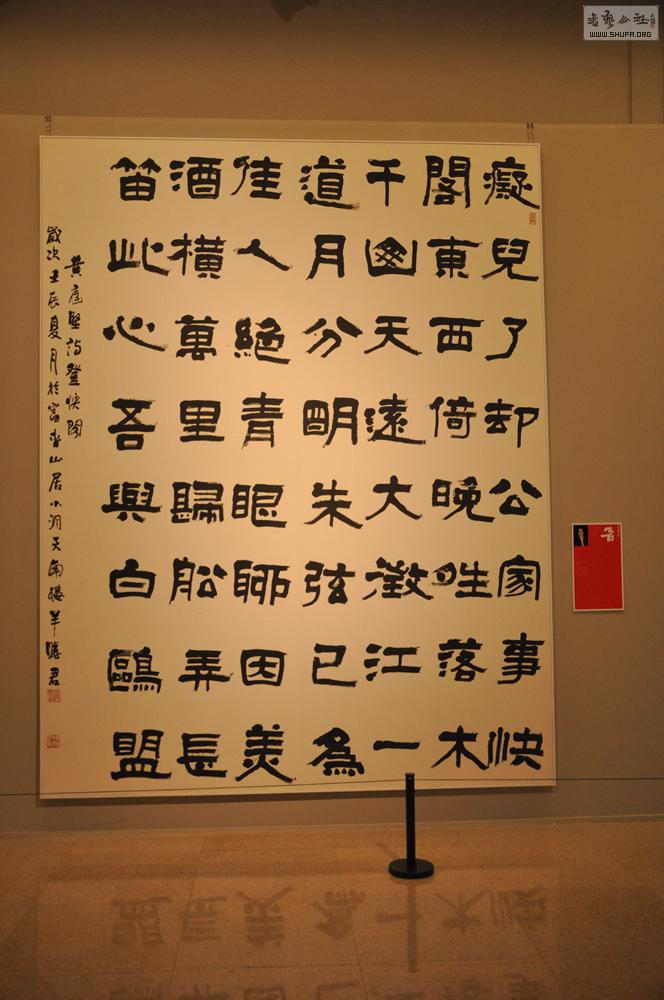 癡兒了却公家事快
閣東西倚晚晴落木
千山天遠大澂江一
道月分明朱弦已為
佳人絕青眼聊因美
酒橫萬里歸船弄長
笛此心吾與白鷗盟
黄庭堅詩登快閣
歲次壬辰夏月於富春山居小洞天角樓羊曉君
書藝公社
WWW.SHUFA.ORG